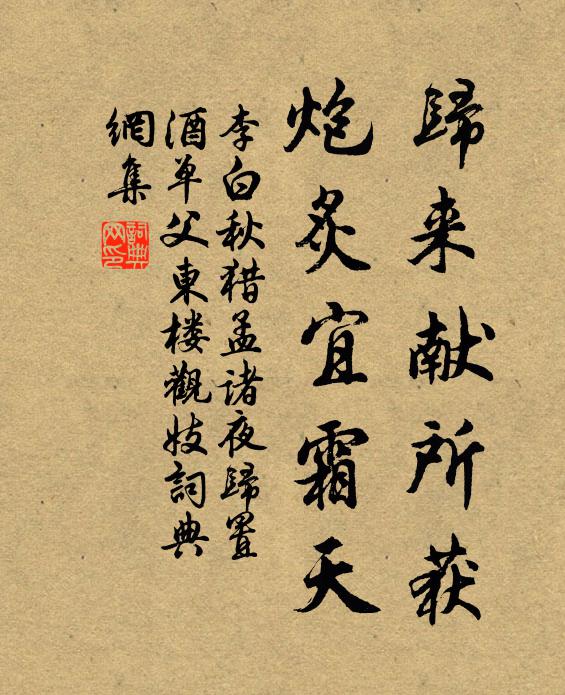 歸来献所获
炮炙宜霜天
李白秋猎孟诸夜歸置
酒单父東楼觀妓詞典
網集
詞典网印